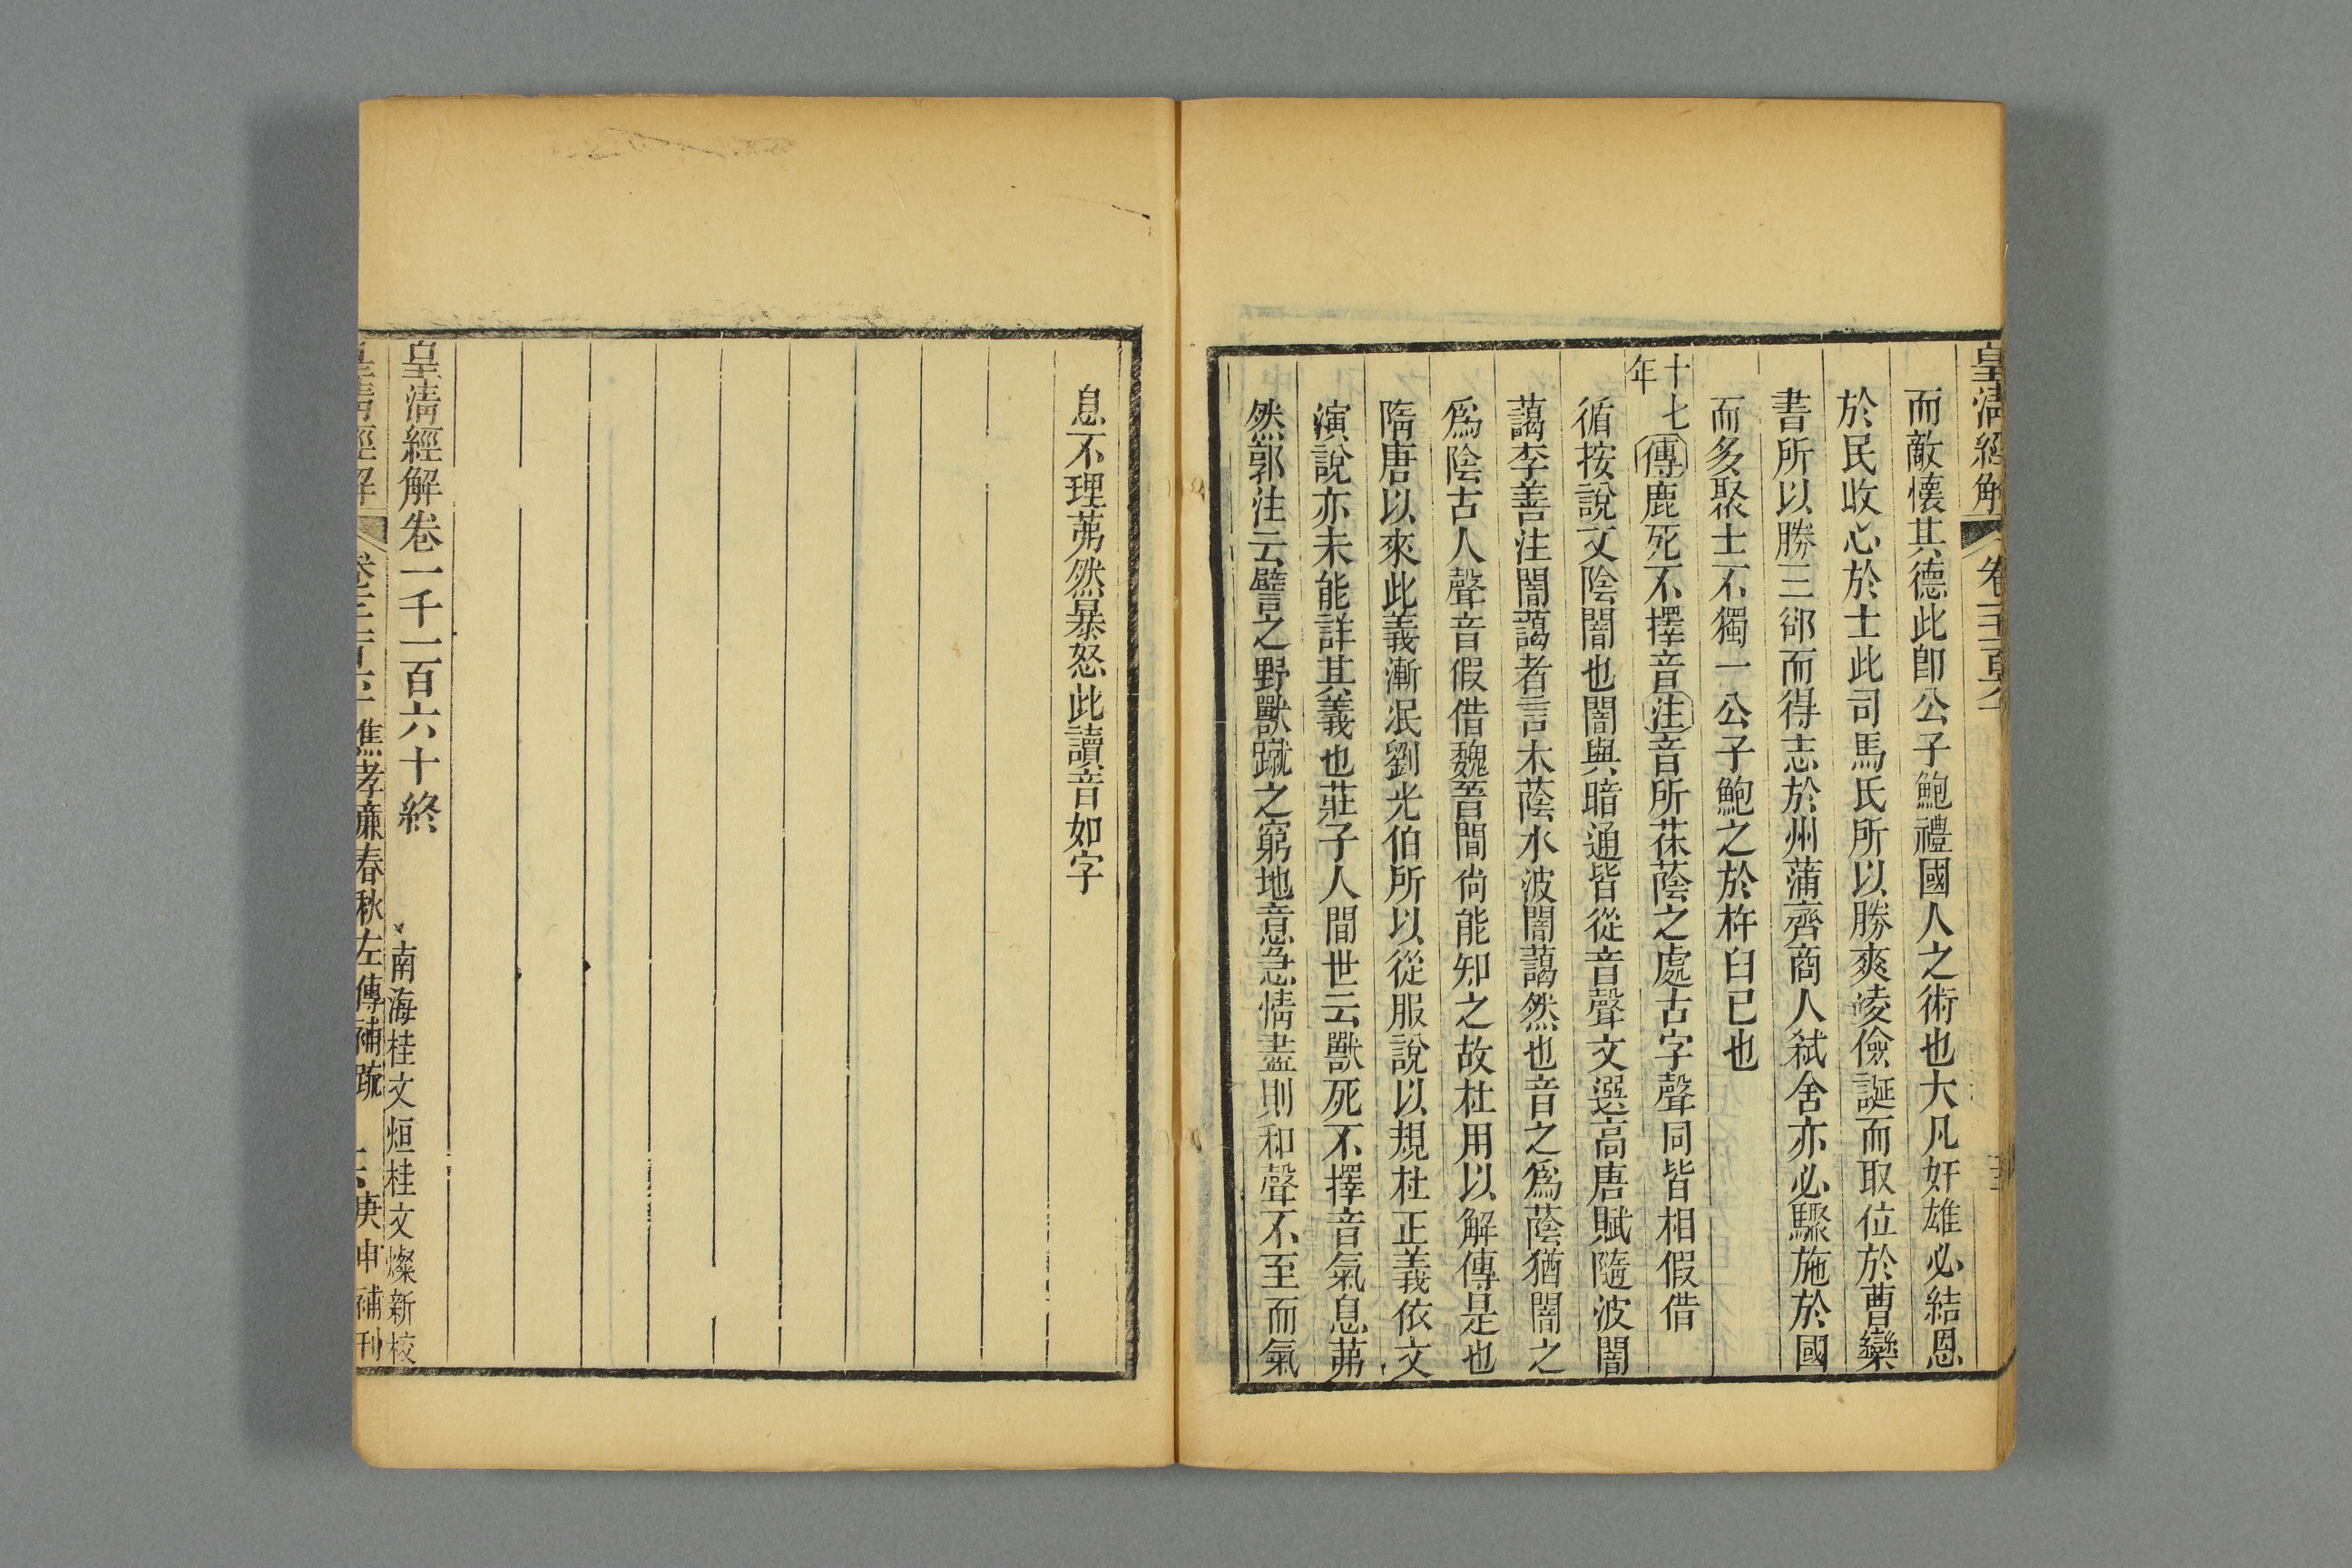 皇清經解
而敵懷其德此卽公子鮑禮國人之術也大凡奸雄必結恩
於民收心於士此司馬氏所以勝爽淩儉誕而取位於曹欒
書所以勝三郤而得志於州蒲齊商人弒舍亦必驟施於國
而多聚士不獨一公子鮑之於杵臼已也
十七年傳鹿死不擇音注音所茠蔭之處古字聲同皆相假借
循按說文陰闇也闇與暗通皆從音聲文選高唐賦隨波闇
藹李善注闇藹者言木蔭水波闇藹然也音之爲蔭猶闇之
爲陰古人聲音假借魏晉間尙能知之故杜用以解傳是也
隋唐以來此義漸泯劉光伯所以從服說以規杜正義依文
演說亦未能詳其義也莊子人間世云獸死不擇音氣息茀
然郭注云譬之野獸蹴之窮地意急情盡則和聲不至而氣
息不理茀然暴怒此讀音如字
皇清經解卷一千一百六十終
南海桂文烜桂文燦新校
皇清經解
焦孝廉春秋左傳補疏
庚申補刊